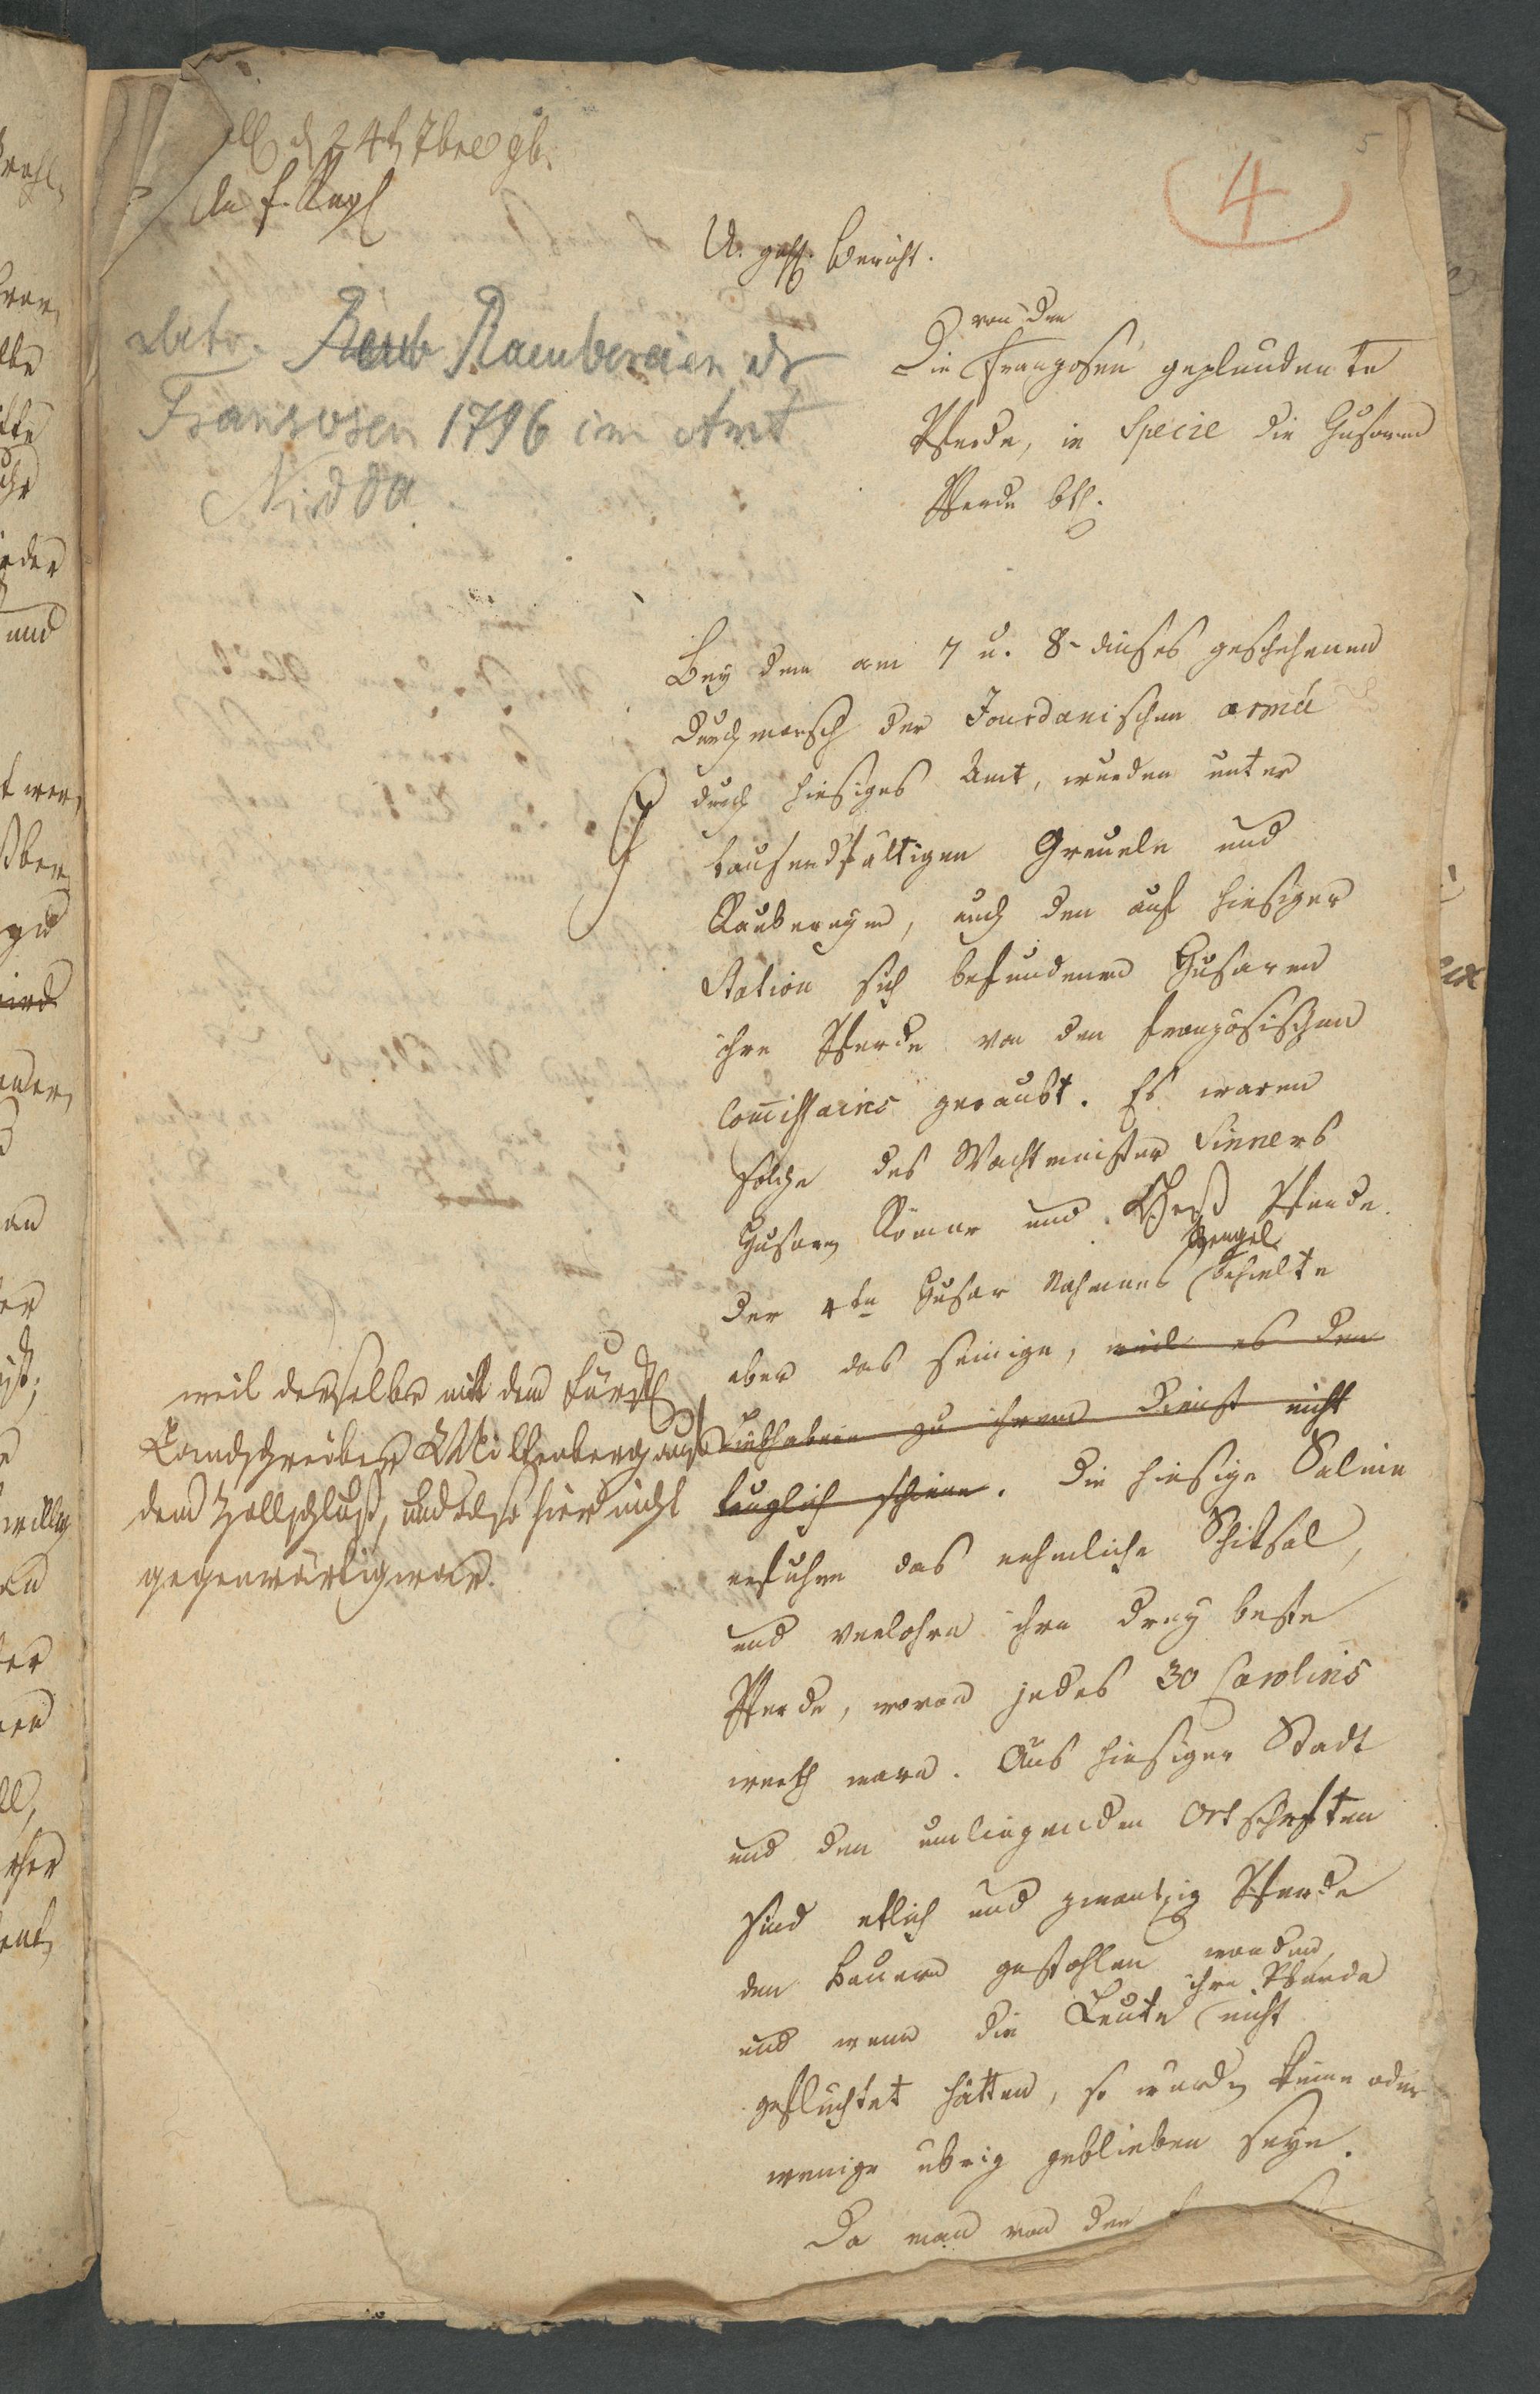 d 24t 7bre
4
5
U. geh. Bericht.
Betr. Raub Raubereien der
Franzosen 1796 im Amt
Nidda
von den
Die Franzosen geplünderte
Pferde, in Specie die Husaren
Pferde btr.
Bey dem am 7 u. 8- dieses geschehenen
durchmarsch der Jourdanischen armée
durch hiesiges Amt, wurden unter
tausendfältigen Greueln und
Raubereyen, auch den auf hiesiger
Station sich befundenen Husaren
ihre Pferde von den französischen
Comissairs geraubt. Es waren
solche des Wachtmeister Sinners
Husaren Römer und Pferde.
der 4te Husar Nahmens Wengel behielte
aber das seinige, weil es den
Liebhabern zu ihrem Dienst nicht
tauglich schiene. Die hiesige Saline
erfuhre das nehmliche Schiksal,
und verlohre ihre drey beste
Pferde, wovon jedes 30 Carolins
werth ware. Aus hiesiger Stadt
und den umliegenden Ortschaften
sind etlich und zwantzig Pferde
den Bauern gestohlen worden,
und wenn die Leute ihre Pferde nicht
gefluchtet hätten, so wurden keine oder
wenige ubrig geblieben seyn.
Da man von den
weil derselbe mit dem Fürstl
Landschreiber Miltenberg auf
dem Zollschluß, und also hier nicht
gegenwärtig war.